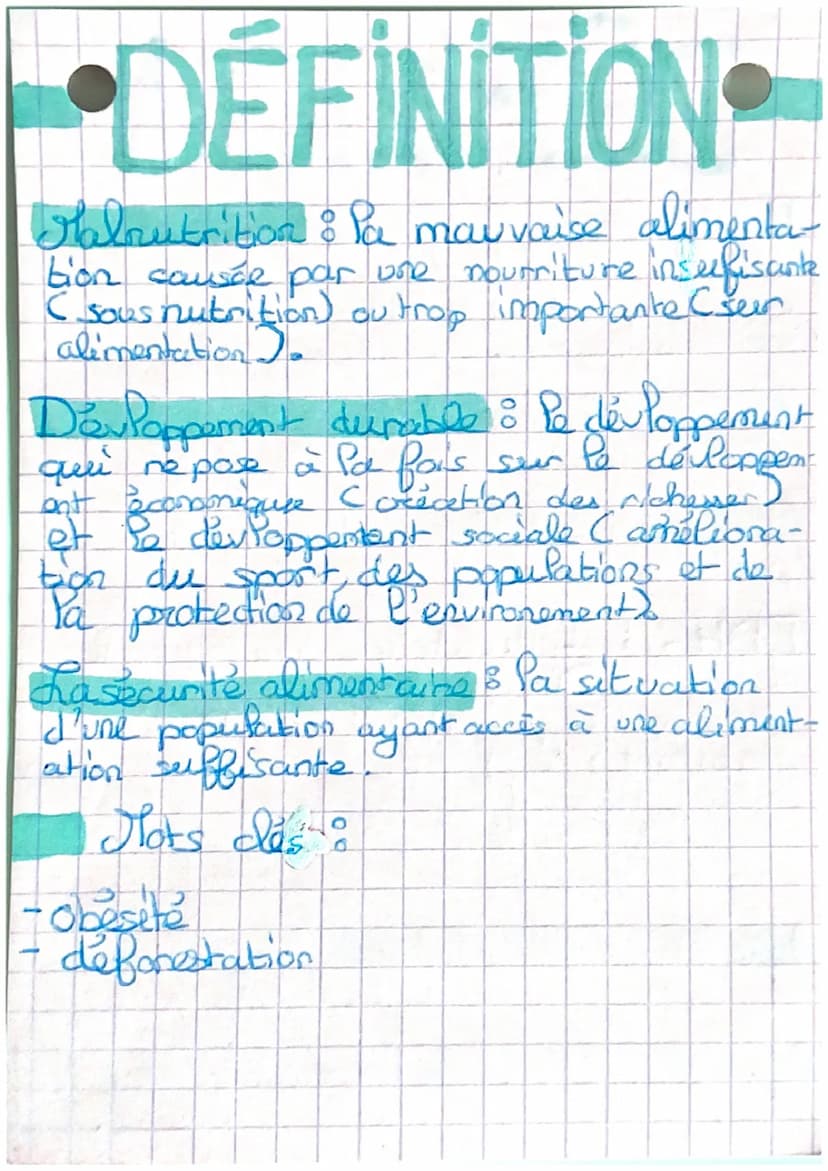 DÉFINITION
Malnutrition : la mauvaise alimenta-
tion causée par une nourriture insufisante
(sousnutrition) ou trop importante (sur
alimentation).
Dévloppement durable : le dévloppement
qui repose à la fois sur le dévloppem
ent économique (création des richesses)
et le dévloppentent sociale (améliora-
tion du sport, des populations et de
la protection de l'environement).
La sécurité alimentaire : la situation
d'une population ayant accès à une aliment-
ation suffisante.
Mots clés :
- obésité
- déforestation